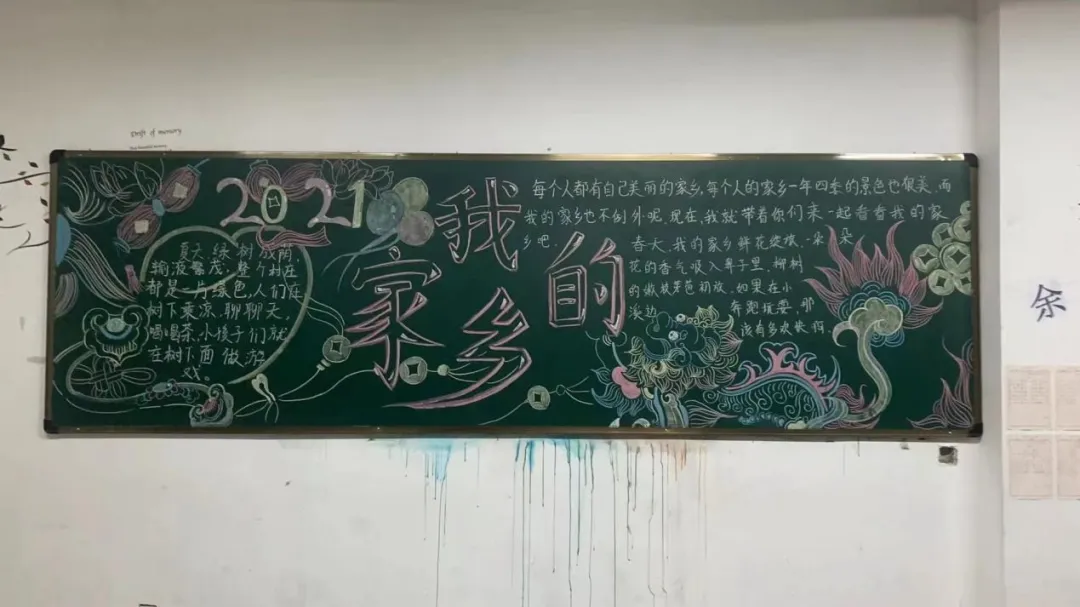 Drift of memory
2021
我的
家乡
夏天,绿树成荫,
输液繁茂。整个村庄
都是一片绿色,人们在
树下乘凉,聊聊天,
喝喝茶,小孩子们就
在树下面做游
戏。
每个人都有自己美丽的家乡,每个人的家乡一年四季的景色也很美,而
我的家乡也不例外呢,现在,我就带着你们来一起看看我的家
乡吧。
春天,我的家乡鲜花绽放,一朵朵
花的香气吸入鼻子里,柳树
的嫩枝芽苞初放,如果在小
溪边奔跑玩耍,那
该有多欢快啊
余